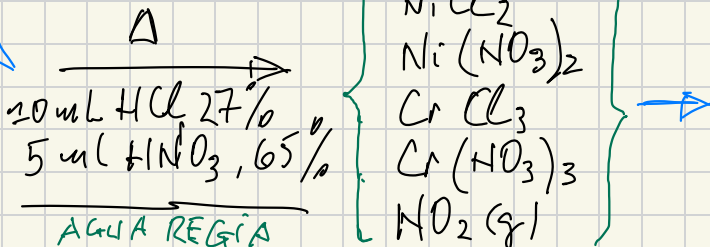 Δ
10 mL HCl 27%
5 ml HNO3, 65%
AGUA REGIA
NiCl2
Ni(NO3)2
CrCl3
Cr(NO3)3
NO2(g)